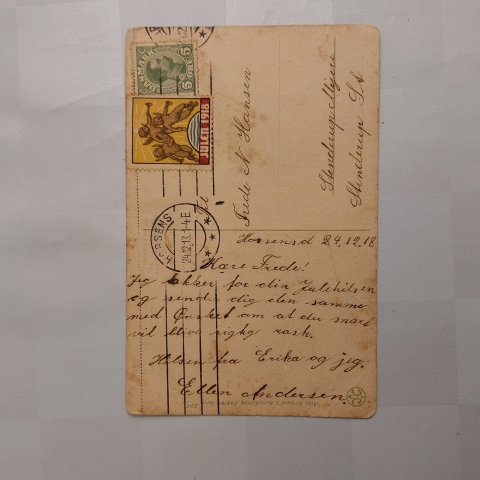 DANMARK
5 ØRE 5
JULEN 1918
HORSENS
24.12.18. 1-4 E
Til
Frede N Hansen
Stenderup Mejeri
Stenderup St
Horsens d 24.12.18
Kære Frede!
Jeg takker for din Julehilsen
og sender dig den samme
med Ønsket om at du snart
vil blive rigtig rask.
Hilsen fra Erika og jeg.
Ellen Andersen.